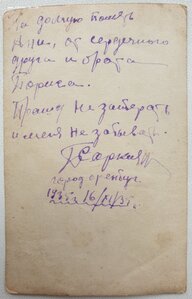 На долгую память
Ане, от сердечного
друга и брата
Бориса.
Прашу не затерать
и меня не забывать.
город Оренбург
16/